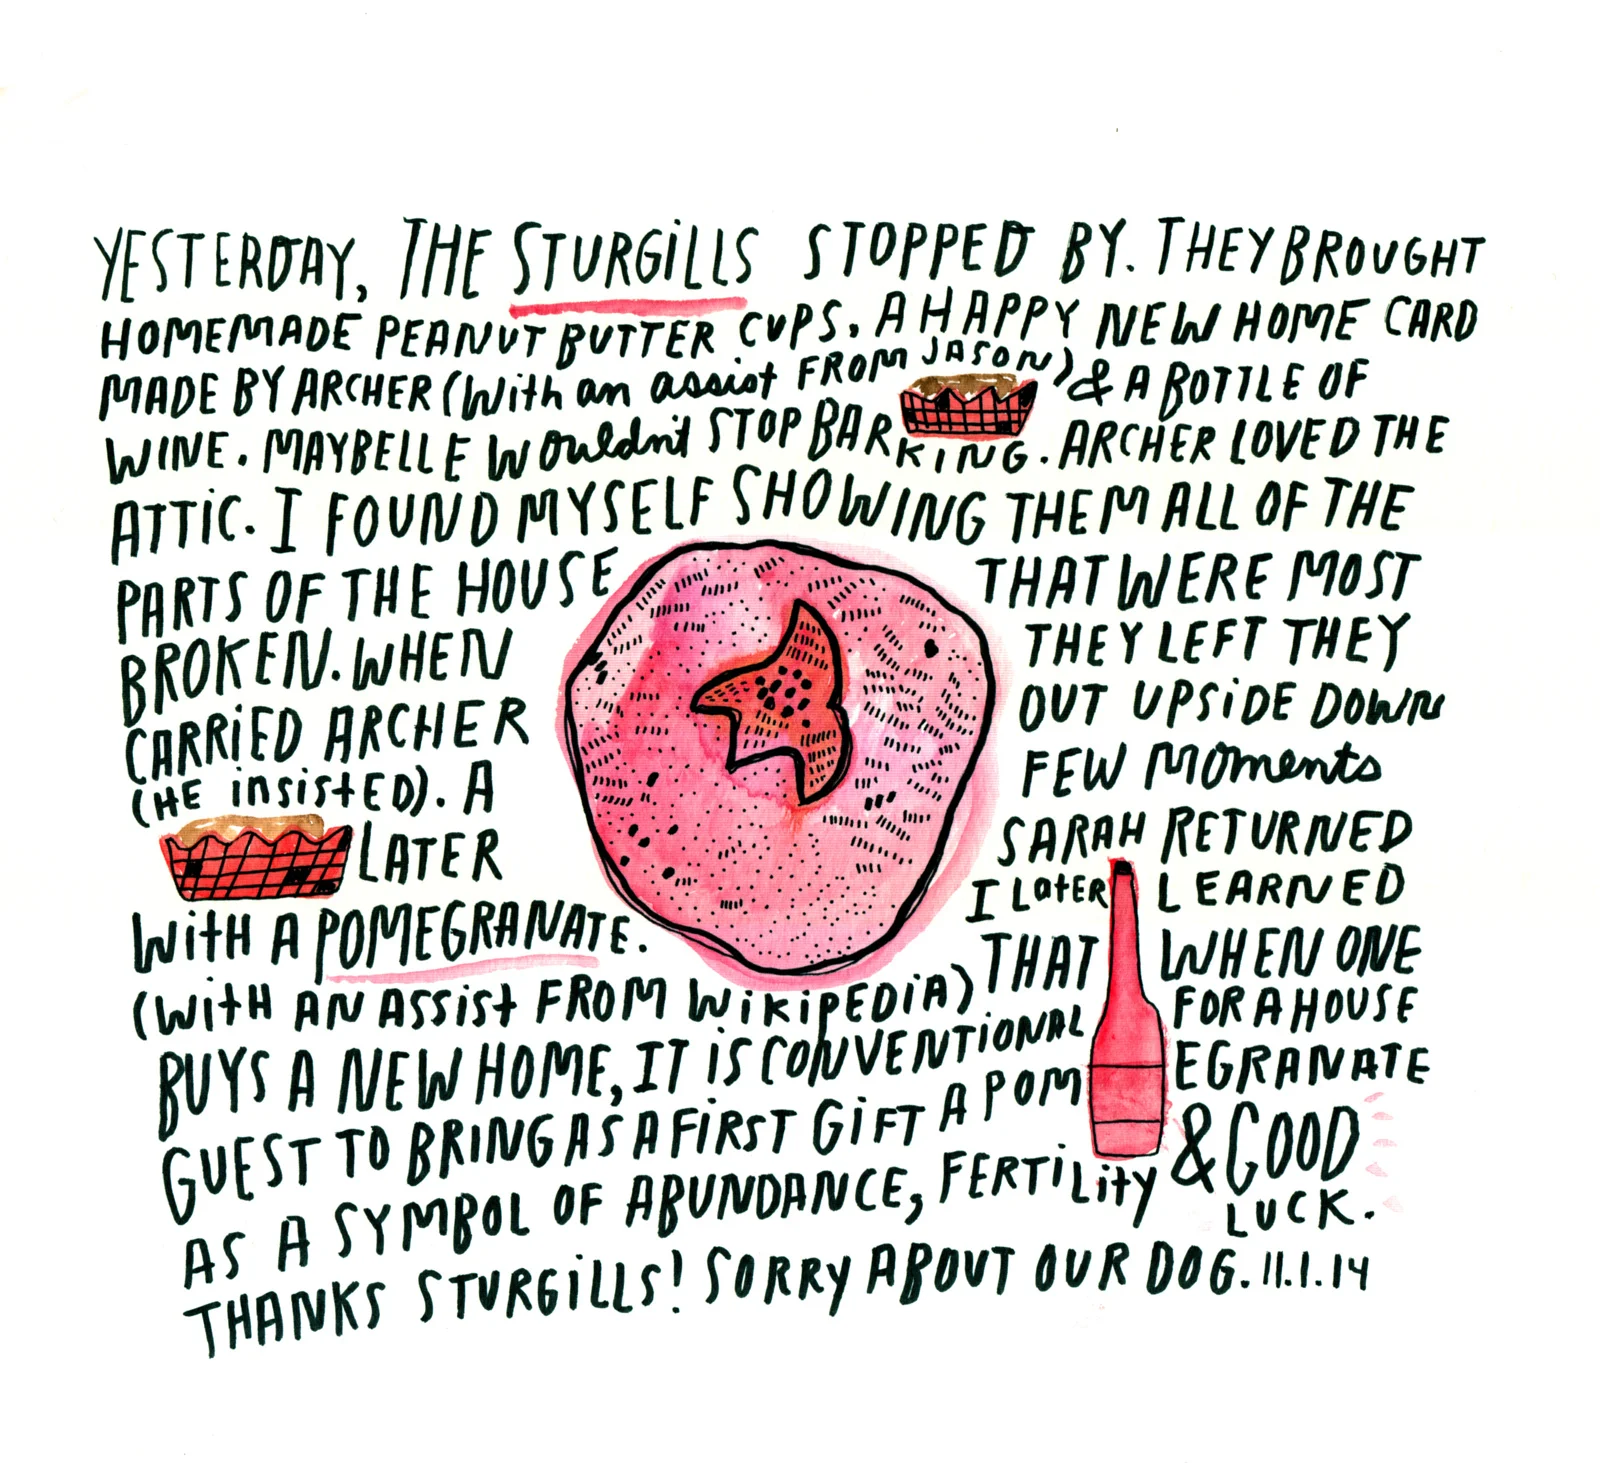 YESTERDAY, THE STURGiLLS STOPPED BY. THEY BROUGHT
HOMEMADE PEANUT BUTTER CUPS, A HAPPY NEW HOME CARD
MADE BY ARCHER (With an assist FROM JASON) & A BOTTLE OF
WINE. MAYBELLE Wouldn't STOP BARKING. ARCHER LOVED THE
ATTiC. I FOUND MYSELF SHOWING THEM ALL OF THE
PARTS OF THE HOUSE THAT WERE MOST
BROKEN. WHEN THEY LEFT THEY
CARRiED ARCHER OUT UPSiDE DOWN
(HE insistED). A FEW Moments
LATER SARAH RETURNED
WitH A POMEGRANATE. I LatER LEARNED
(WitH AN ASSist FROM WikiPEDiA) THAT WHEN ONE
BUYS A NEW HOME, IT iS CONVENTiONAL FOR A HOUSE
GUEST TO BRING AS A FiRST GiFT A POMEGRANATE
AS A SYMBOL OF ABUNDANCE, FERTiLity & GOOD
LUCK.
THANKS STURGiLLS! SORRY ABOUT OUR DOG. 11.1.14